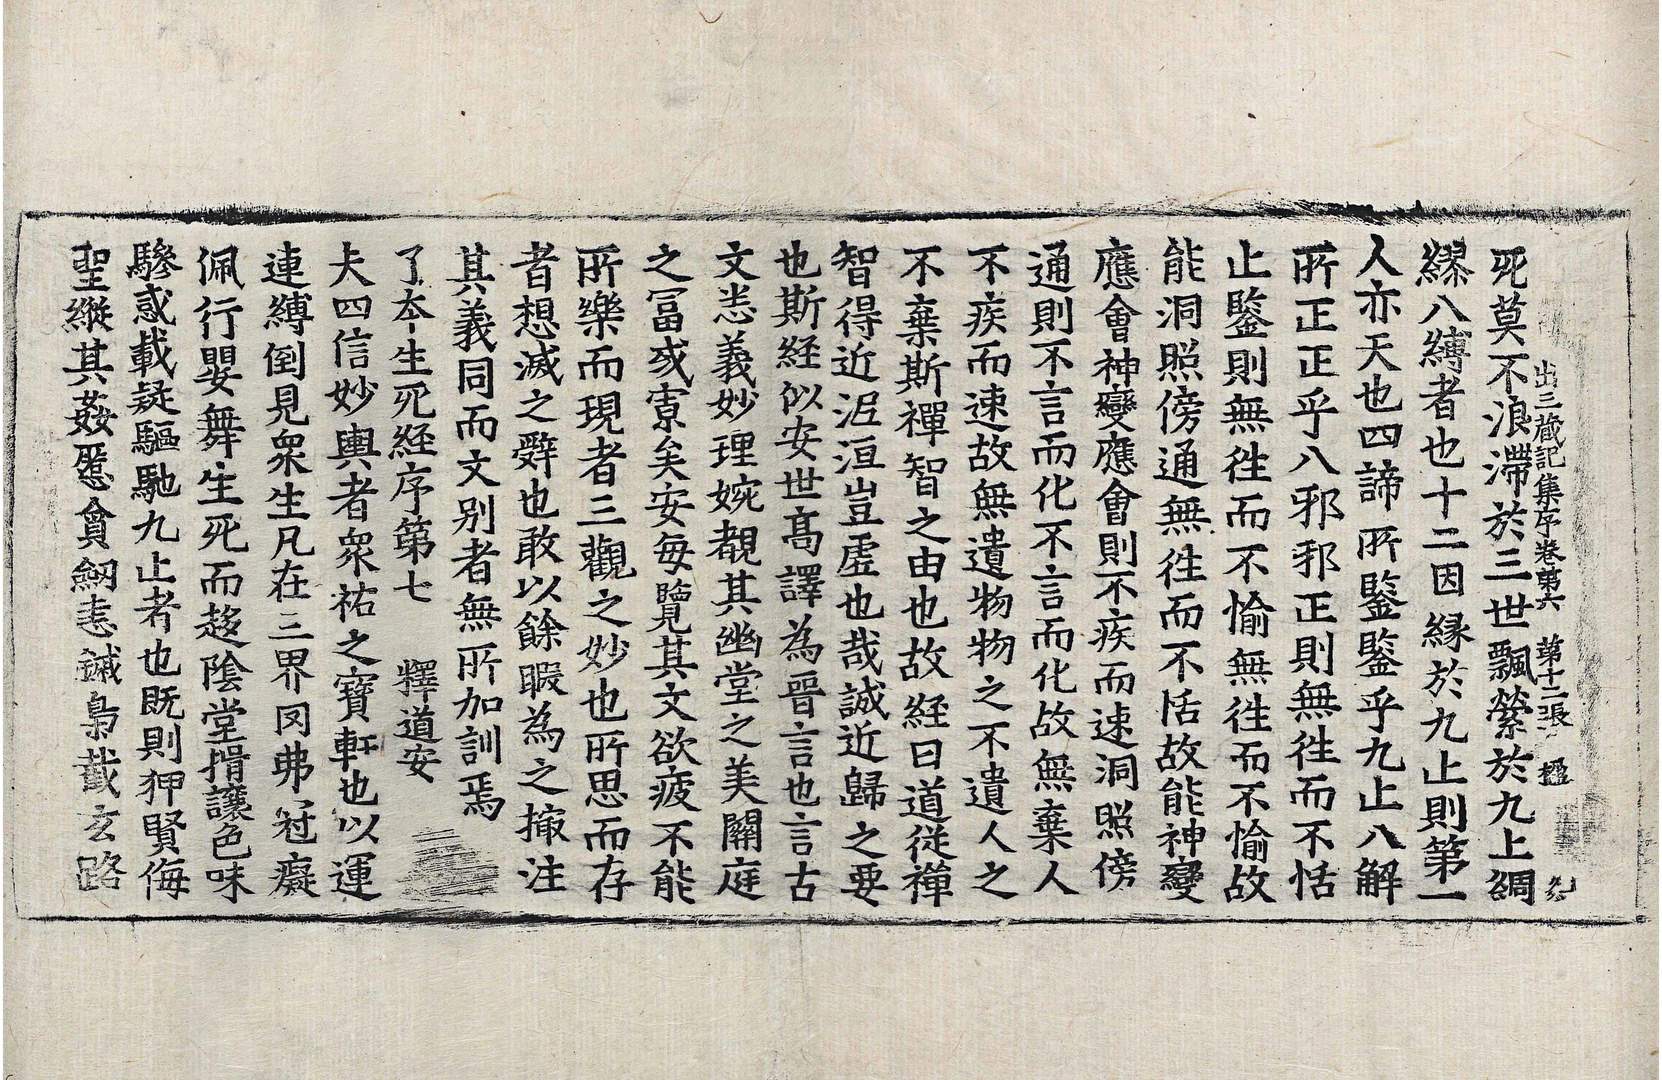 出三藏記集序卷第六　第十二張　楹
死莫不浪滯於三世飄縈於九止綢
繆八縛者也十二因緣於九止則第一
人亦天也四諦所鑒鑒乎九止八解
所正正乎八邪邪正則無往而不恬
止鑒則無往而不愉無往而不愉故
能洞照傍通無往而不恬故能神變
應會神變應會則不疾而速洞照傍
通則不言而化不言而化故無棄人
不疾而速故無遺物物之不遺人之
不棄斯禪智之由也故經曰道從禪
智得近泥洹豈虛也哉誠近歸之要
也斯經似安世高譯為晉言也言古
文悉義妙理婉覩其幽堂之美闕庭
之富或寡矣安每覽其文欲疲不能
所樂而現者三觀之妙也所思而存
者想滅之辭也敢以餘暇為之撮注
其義同而文別者無所加訓焉
了本生死經序第七　釋道安
夫四信妙輿者眾祐之寶軒也以運
連縛倒見眾生凡在三界罔弗冠癡
佩行嬰舞生死而趍陰堂揖讓色味
驂惑載疑驅馳九止者也既則狎賢侮
聖縱其姦慝貪劒恚鏚梟截玄路